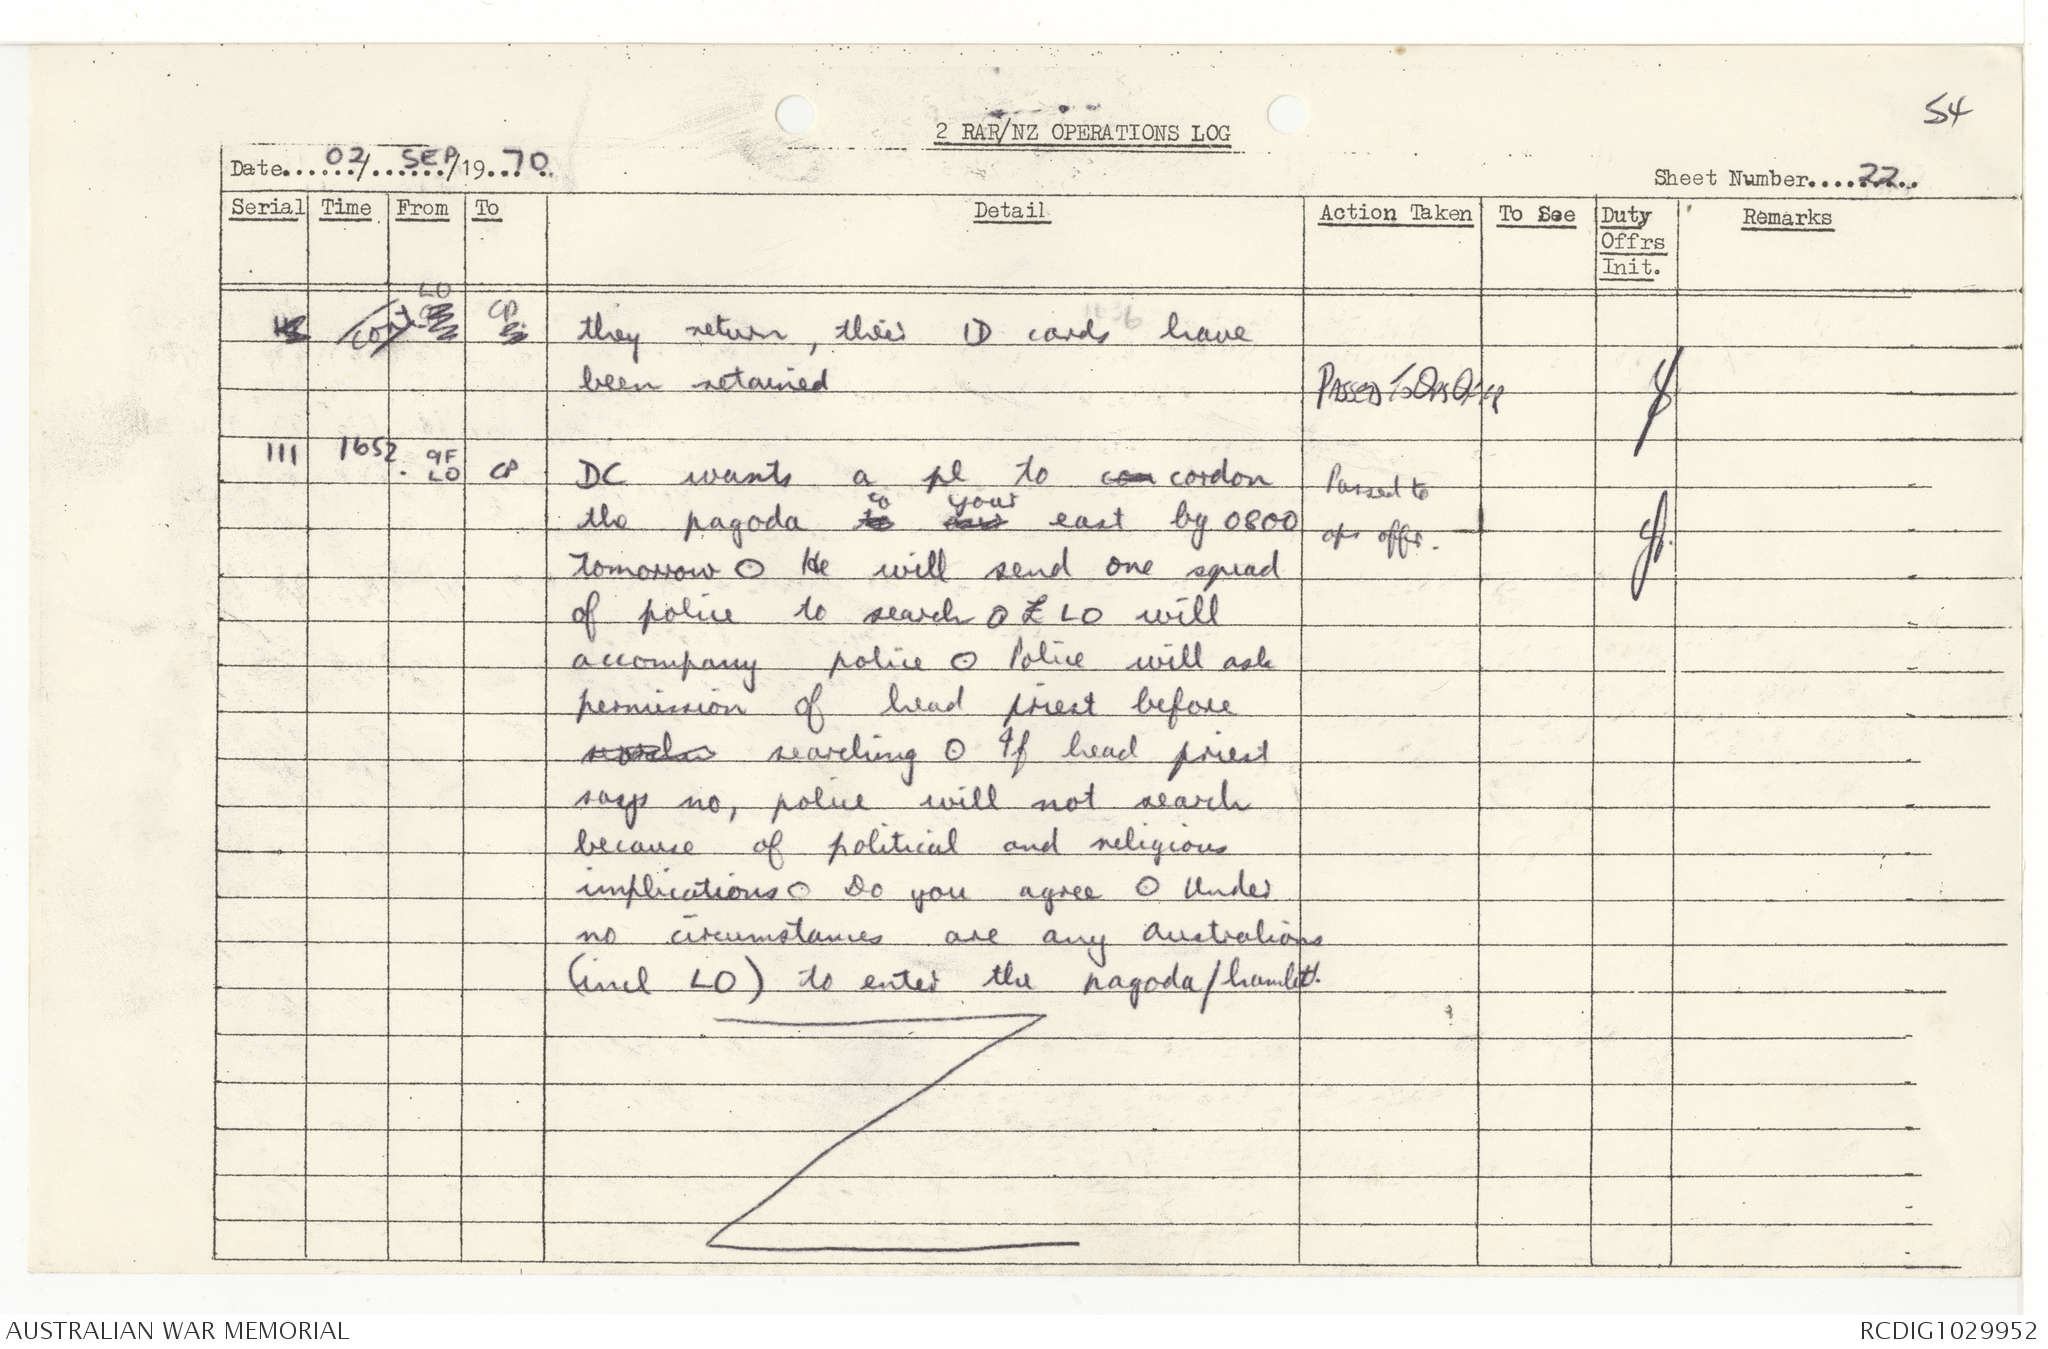 54
2 RAR/NZ OPERATIONS LOG
Date......02/...SEP/19...70..
Sheet Number....22...
Serial Time From To Detail Action Taken To See Duty Offrs Init. Remarks
cont LO CP they return, their ID cards have
been retained PASSED TO OPS OFFR
111 1652 9F LO CP DC wants a pl to cordon Passed to
the pagoda to your east by 0800 ops offr.
tomorrow ⊙ He will send one squad
of police to search ⊙ LO will
accompany police ⊙ Police will ask
permission of head priest before
searching ⊙ If head priest
says no, police will not search
because of political and religious
implications ⊙ Do you agree ⊙ Under
no circumstances are any Australians
(incl LO) to enter the pagoda/hamlet.
AUSTRALIAN WAR MEMORIAL
RCDIG1029952